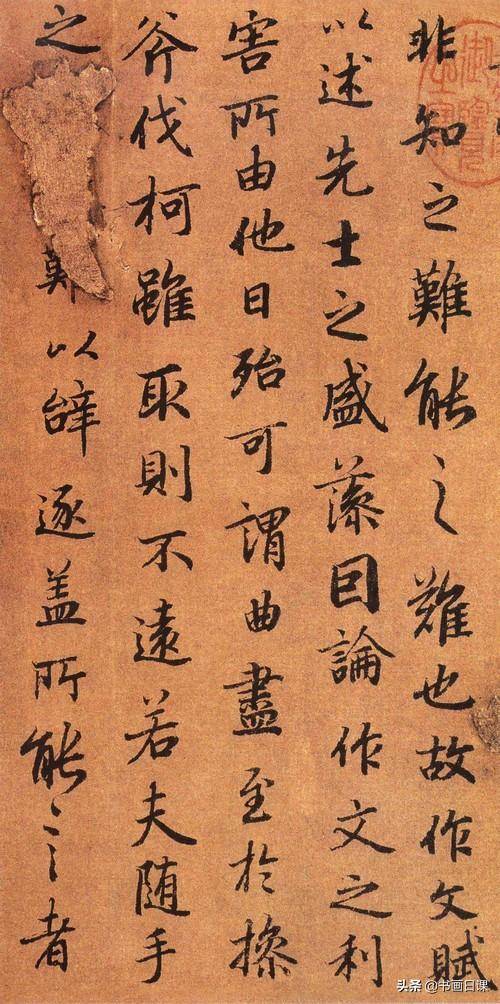 非知之難能之難也故作文賦
以述先士之盛藻因論作文之利
害所由他日殆可謂曲盡至於操
斧伐柯雖取則不遠若夫随手
之難以辭逐盖所能言者
头条 @书画日课